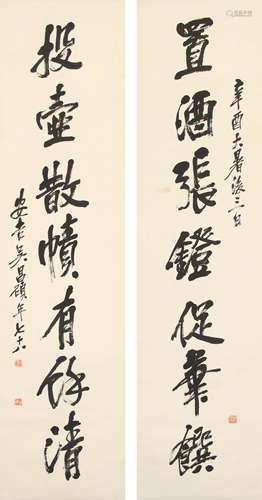 置酒張鐙促華饌
辛酉大暑後三日
投壺散帙有餘清
安吉吳昌碩年七十八